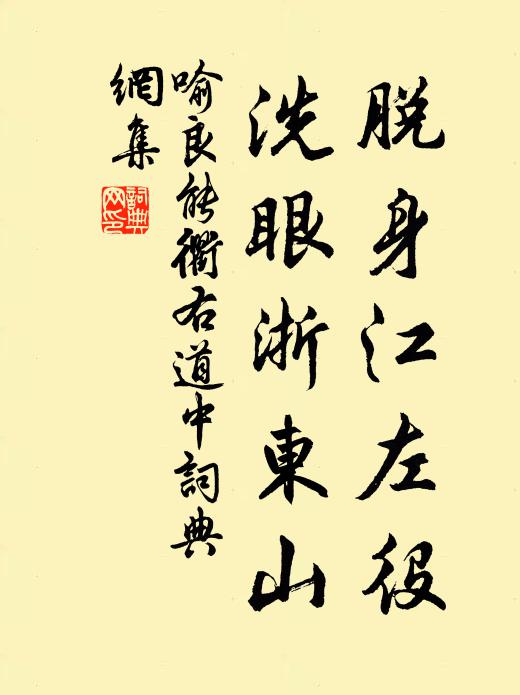 脱身江左役
洗眼浙東山
喻良能衢右道中詞典
網集
詞典網印